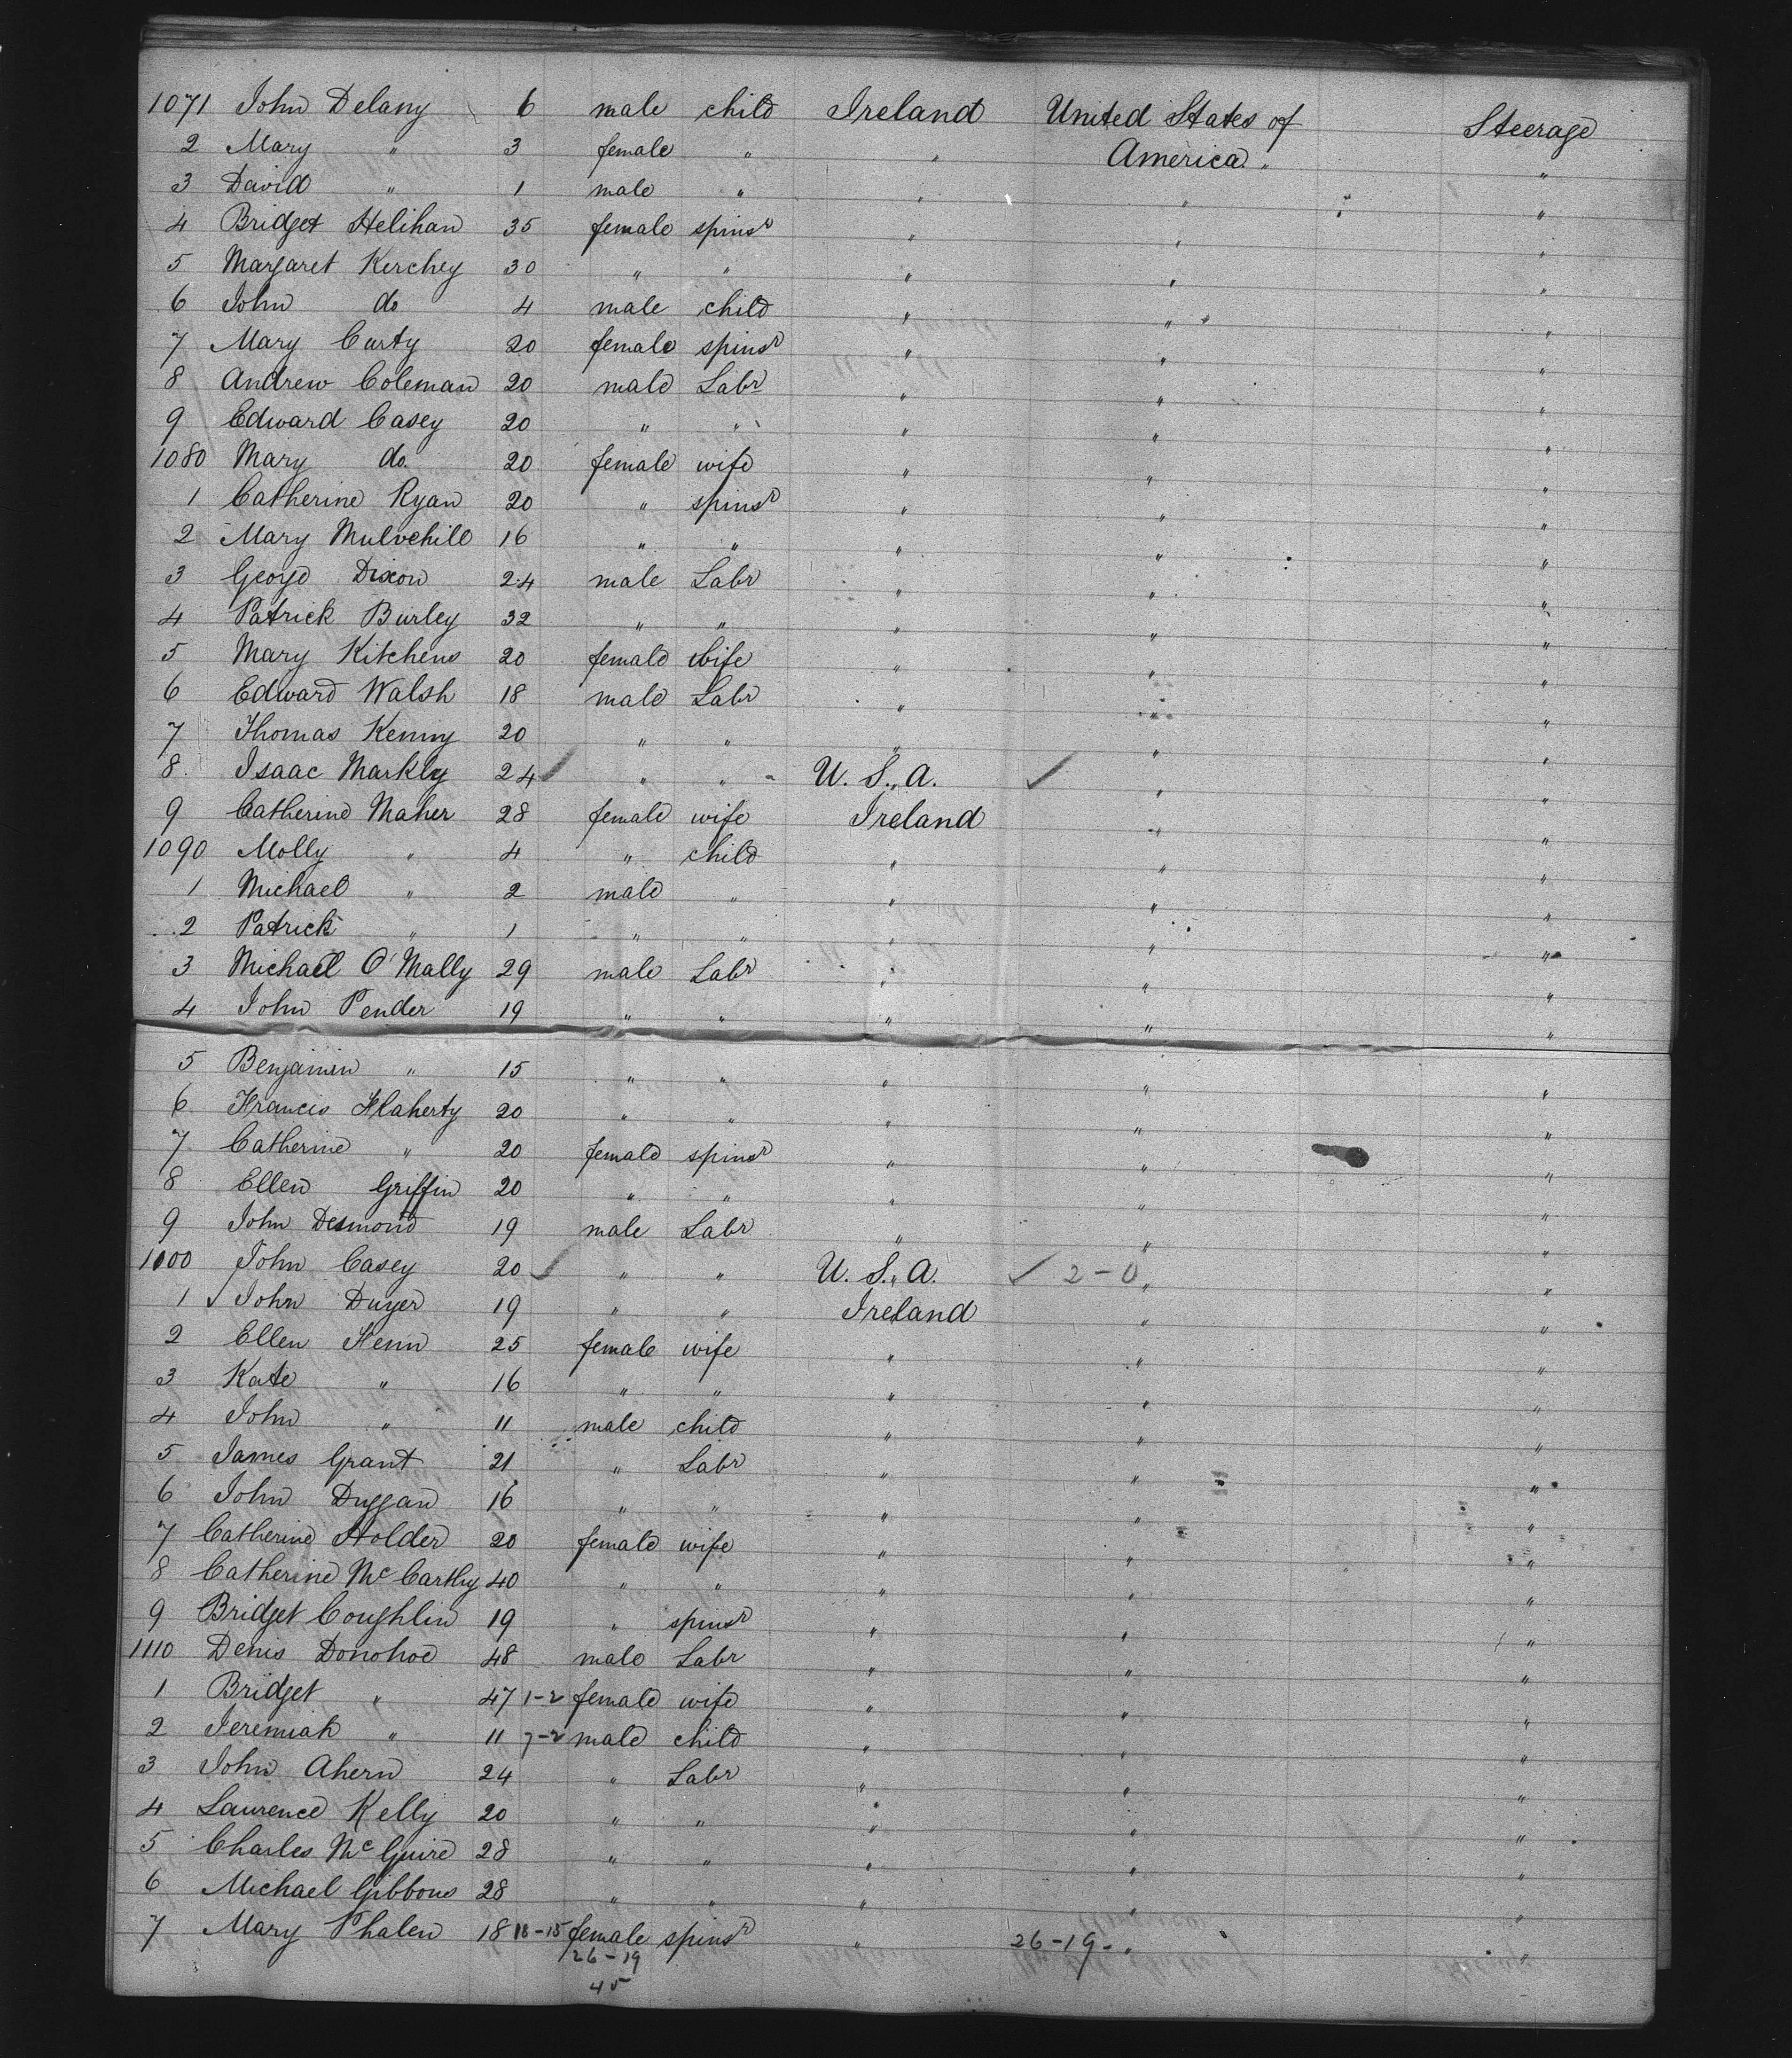 1071 John Delany 6 male child Ireland United States of Steerage
2 Mary " 3 female " " America " "
3 David " 1 male " " " "
4 Bridget Helihan 35 female spinsr " " "
5 Margaret Kerchey 30 " " " " "
6 John do 4 male child " " "
7 Mary Carty 20 female spinsr " " "
8 Andrew Coleman 20 male Labr " " "
9 Edward Casey 20 " " " " "
1080 Mary do. 20 female wife " " "
1 Catherine Ryan 20 " spinsr " " "
2 Mary Mulvehill 16 " " " " "
3 George Dixon 24 male Labr " " "
4 Patrick Burley 32 " " " " "
5 Mary Kitchens 20 female wife " " "
6 Edward Walsh 18 male Labr " " "
7 Thomas Kenny 20 " " " " "
8. Isaac Markly 24 ✓ " " U.S.A. ✓ " "
9 Catherine Maher 28 female wife Ireland " "
1090 Molly " 4 " child " " "
1 Michael " 2 male " " " "
2 Patrick " 1 " " " " "
3 Michael O'Mally 29 male Labr " " "
4 John Pender 19 " " " " "
5 Benjamin " 15 " " " " "
6 Francis Flaherty 20 " " " " "
7 Catherine " 20 female spinsr " " "
8 Ellen Griffin 20 " " " " "
9 John Desmond 19 male Labr " " "
1100 John Casey 20 ✓ " " U.S.A. ✓ 2-0 " "
1 ✓ John Dwyer 19 " " Ireland " "
2 Ellen Henn 25 female wife " " "
3 Kate " 16 " " " " "
4 John " 11 male child " " "
5 James Grant 21 " Labr " " "
6 John Duggan 16 " " " " "
7 Catherine Holder 20 female wife " " "
8 Catherine McCarthy 40 " " " " "
9 Bridget Coughlin 19 " spinsr " " "
1110 Denis Donohoe 48 male Labr " " "
1 Bridget " 47 1-2 female wife " " "
2 Jeremiah " 11 7-2 male child " " "
3 John Ahern 24 " Labr " " "
4 Laurence Kelly 20 " " " " "
5 Charles McGuire 28 " " " " "
6 Michael Gibbons 28 " " " " "
7 Mary Phalen 18 18-15 female spinsr " 26-19- " "
26-19
45